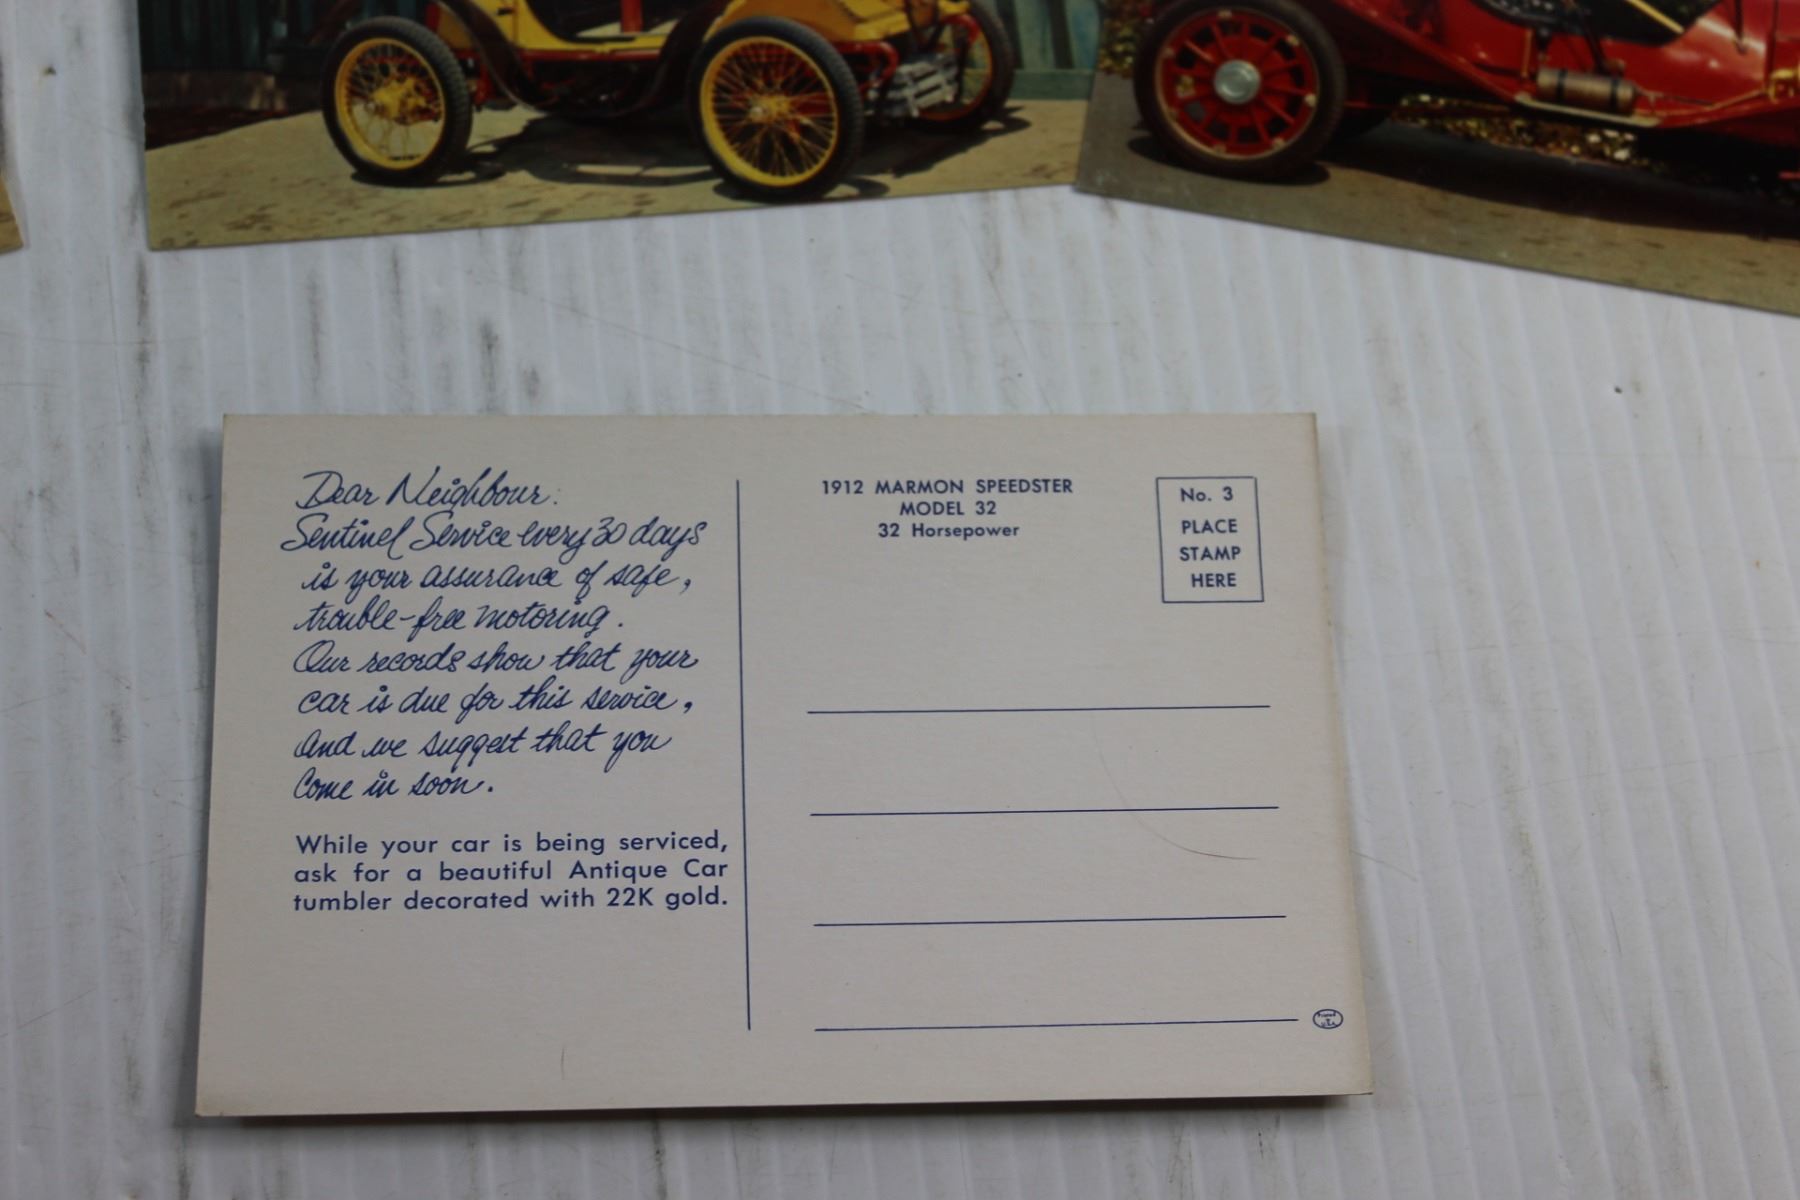 Dear Neighbour:
Sentinel Service every 30 days
is your assurance of safe,
trouble-free motoring.
Our records show that your
car is due for this service,
and we suggest that you
Come in soon.
While your car is being serviced,
ask for a beautiful Antique Car
tumbler decorated with 22K gold.
1912 MARMON SPEEDSTER
MODEL 32
32 Horsepower
No. 3
PLACE
STAMP
HERE
Printed
in
U.S.A.